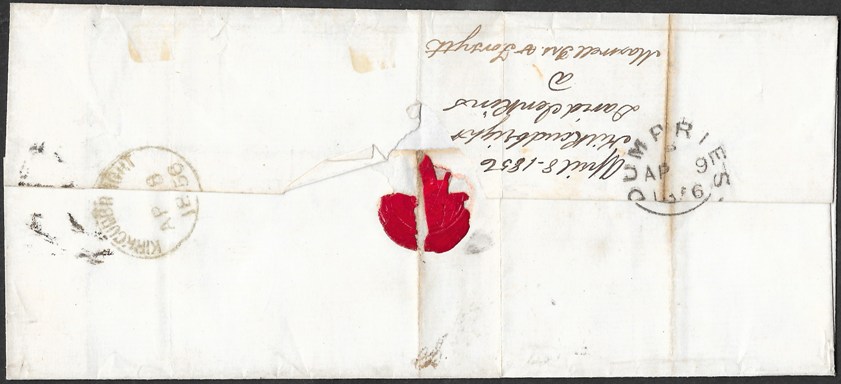 April 8-1856
Kirkcudbright
David Jenkins
@
Maxwell Ins & Forsyth
DUMFRIES
AP 9
1856
KIRKCUDBRIGHT
AP 8
1856